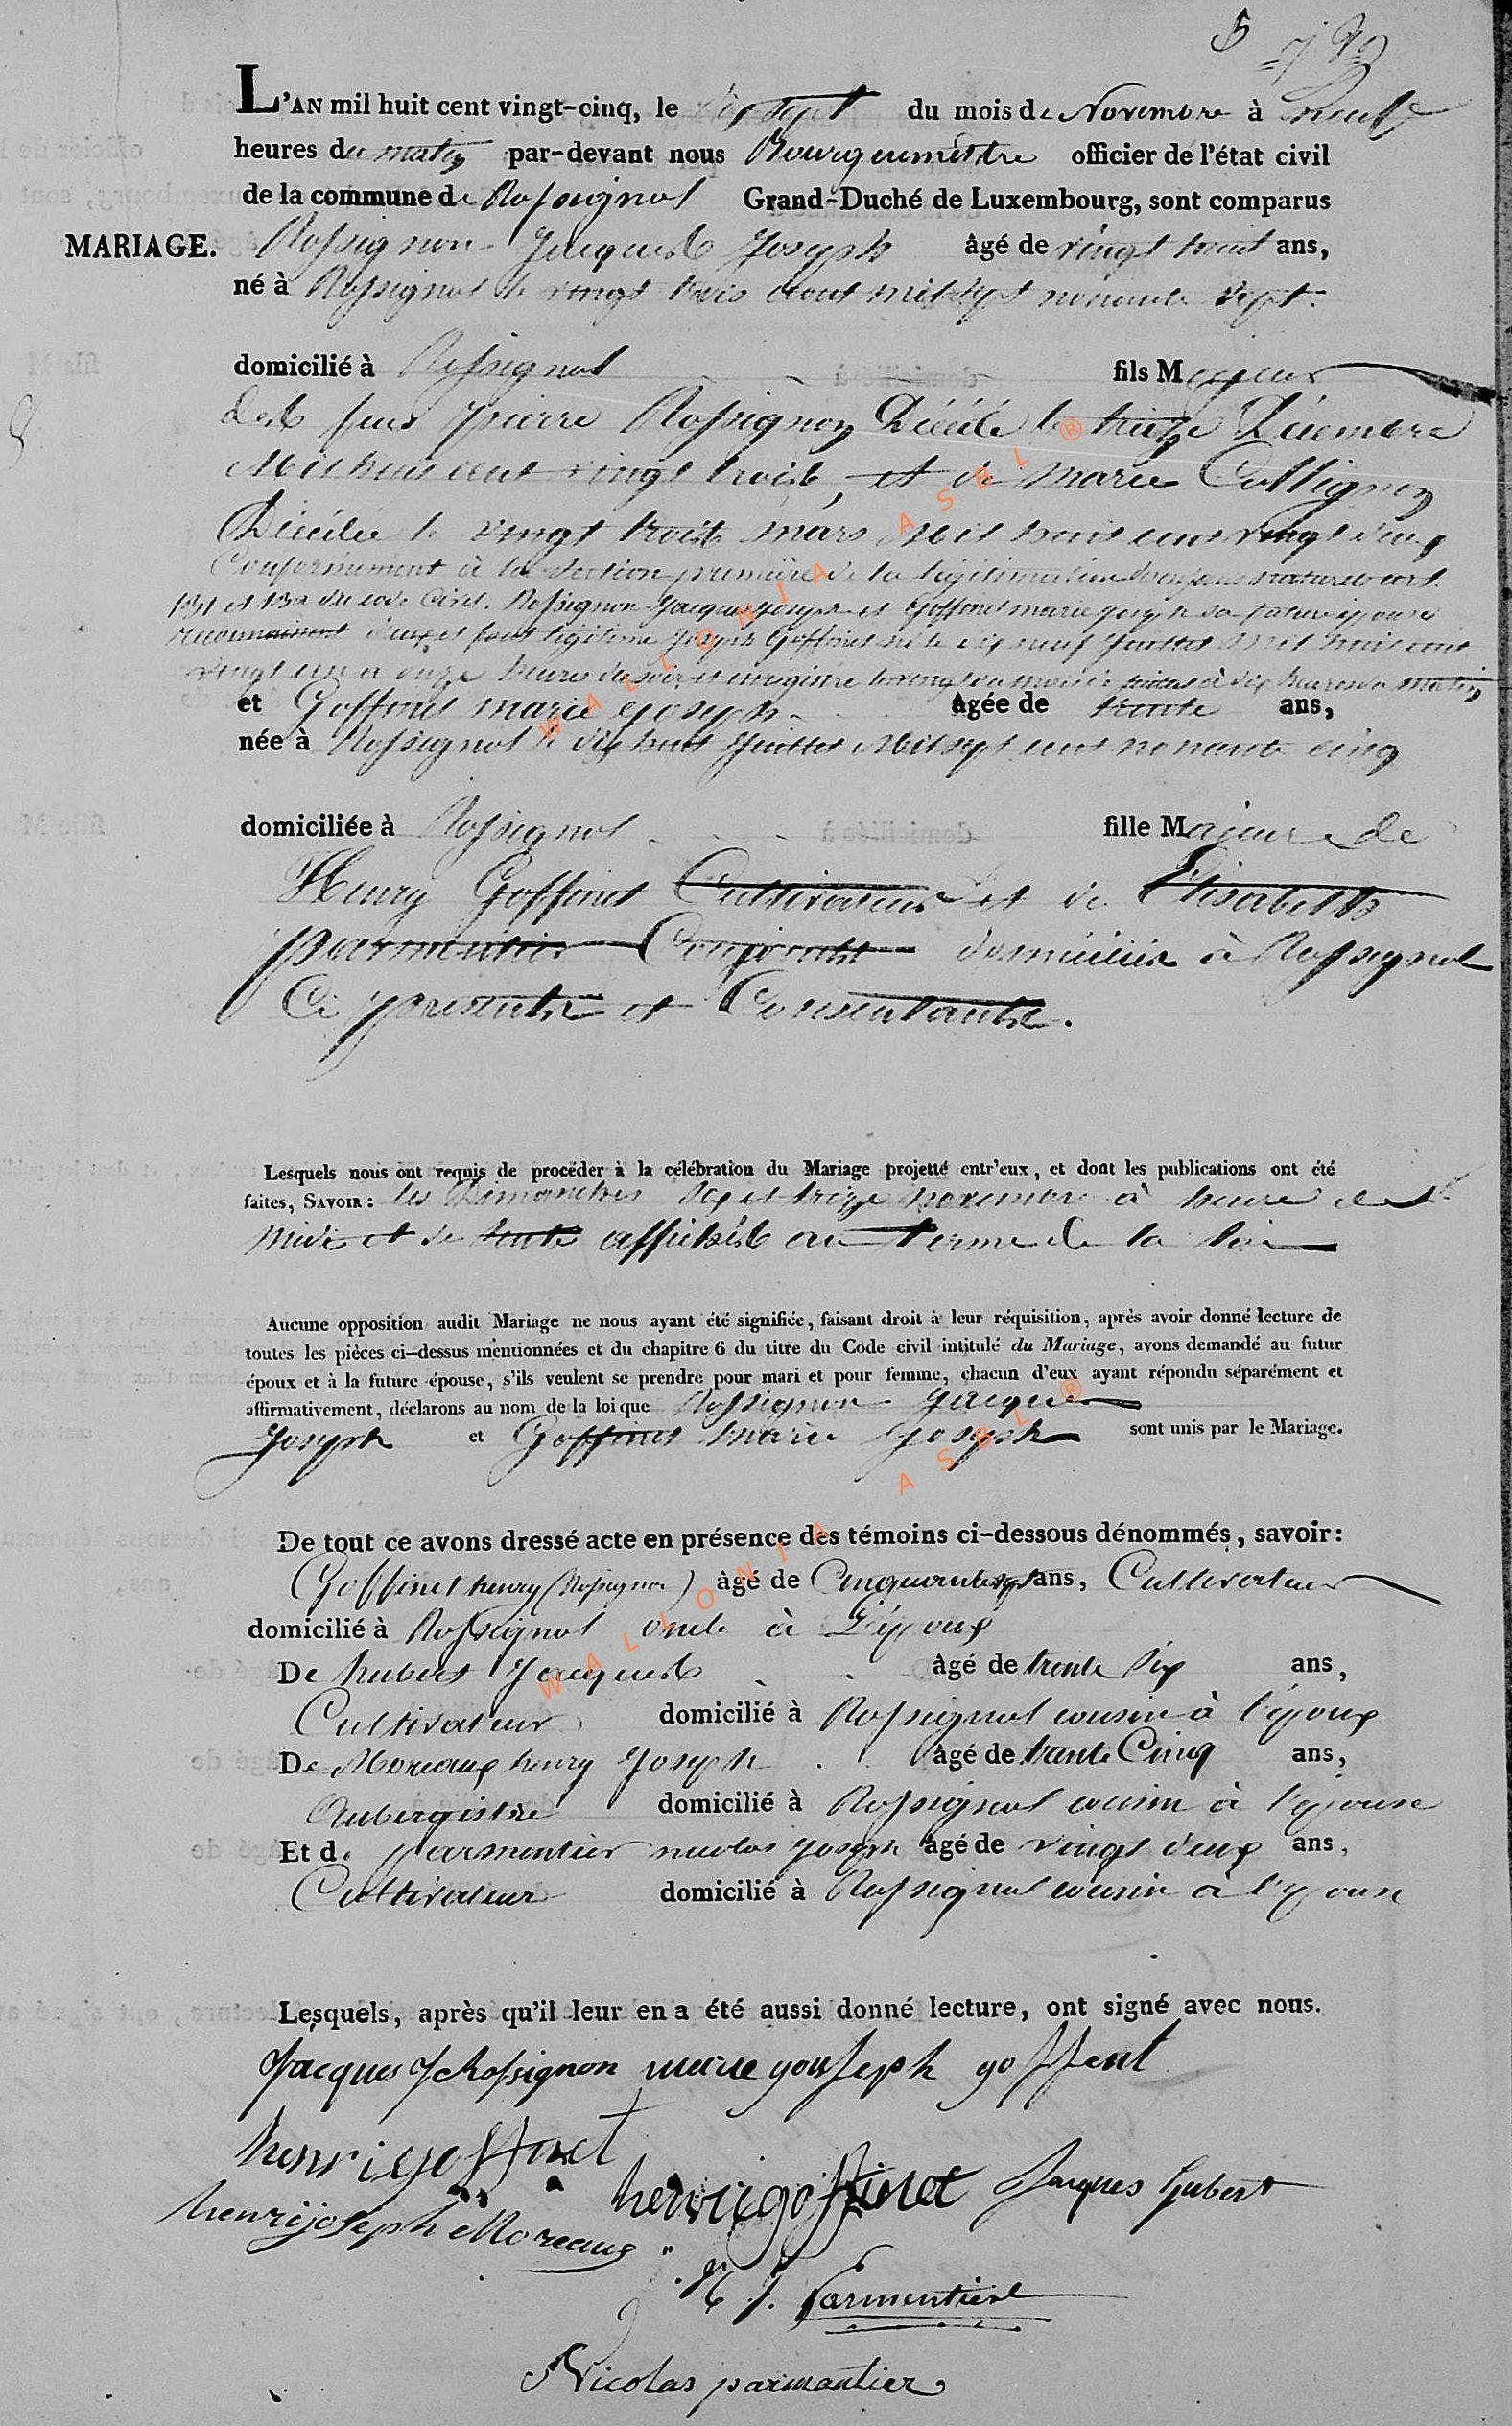 5
L'AN mil huit cent vingt-cinq, le dix sept du mois de Novembre à neuf
heures du matin par-devant nous Bourguemettre officier de l'état civil
de la commune de Rossignol Grand-Duché de Luxembourg, sont comparus
MARIAGE. Rossignon Jacques Joseph âgé de vingt huit ans,
né à Rossignol le vingt trois aout mil sept nonante sept.
domicilié à Rossignol fils Majeur
des feus pierre Rossignon Décédé le treize Décembre
Mil huit cent vingt trois, et de marie Collignon
Décédée le vingt trois mars mil huit cent vingt cinq
Conformément à la Section première de la légitimation des enfans naturels art.
131 et 132 du code Civil. Rossignon Jacques Joseph et Goffinet marie Joseph sa future épouse
reconnaissent légitime Joseph Goffinet né le dix neuf Juillet mil huit cent
vingt un a onze heures du soir et enrégistré le vingt du mois à dix heures du matin
et Goffinet marie Joseph Agée de trente ans,
née à Rossignol le dix huit Juillet Mil sept cent nonante cinq
domiciliée à Rossignol fille Majeure de
Henry Goffinet Cultivateur et de Elisabeth
parmentier Conjoints domiciliés à Rossignol
Ci présents et Consentants.
Lesquels nous ont requis de procéder à la célébration du Mariage projetté entr'eux, et dont les publications ont été
faites, SAVOIR: les Dimanches six et treize novembre à heure de
midi et de affichés au terme de la loi
Aucune opposition audit Mariage ne nous ayant été signifiée, faisant droit à leur réquisition, après avoir donné lecture de
toutes les pièces ci-dessus mentionnées et du chapitre 6 du titre du Code civil intitulé du Mariage, avons demandé au futur
époux et à la future épouse, s'ils veulent se prendre pour mari et pour femme, chacun d'eux ayant répondu séparément et
affirmativement, déclarons au nom de la loi que Rossignon Jacques
Joseph et Goffinet marie Joseph sont unis par le Mariage.
De tout ce avons dressé acte en présence des témoins ci-dessous dénommés, savoir:
Goffinet henry (Rossignon) âgé de Cinquante sept ans, Cultivateur
domicilié à Rossignol oncle à L'époux
De hubert Jacques âgé de trente Six ans,
Cultivateur domicilié à Rossignol cousin à l'époux
De Moreaux henry Joseph âgé de trente Cinq ans,
Aubergiste domicilié à Rossignol cousin à l'épouse
Et de parmentier nicolas Joseph âgé de vingt deux ans,
Cultivateur domicilié à Rossignol cousin à l'épouse
Lesquels, après qu'il leur en a été aussi donné lecture, ont signé avec nous.
Jacques J Rossignon marie yousseph goffent
henri goffinet
henri goffinet Jacques hubert
henrijoseph Moreaux
N J. Parmentier
Nicolas parmantier
WALLONIA ASBL ®
WALLONIA ASBL ®